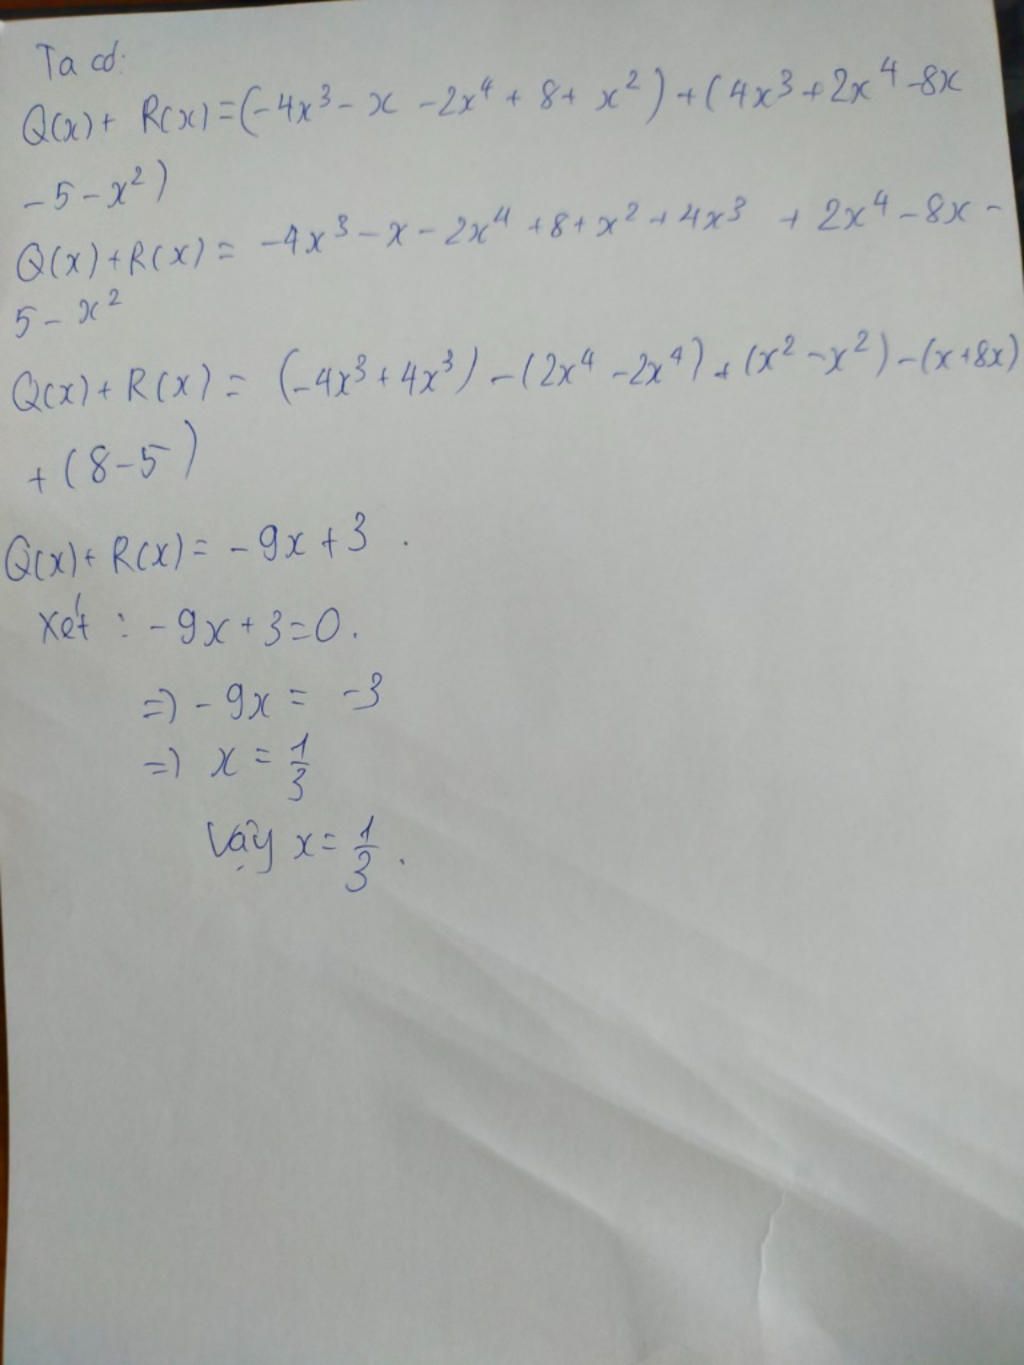 Ta có:
Q(x) + R(x) = (-4x³ - x - 2x⁴ + 8 + x²) + (4x³ + 2x⁴ - 8x
- 5 - x²)
Q(x) + R(x) = -4x³ - x - 2x⁴ + 8 + x² + 4x³ + 2x⁴ - 8x -
5 - x²
Q(x) + R(x) = (-4x³ + 4x³) - (2x⁴ - 2x⁴) + (x² - x²) - (x + 8x)
+ (8 - 5)
Q(x) + R(x) = -9x + 3.
Xét: -9x + 3 = 0.
=> -9x = -3
=> x = 1/3
Vậy x = 1/3.